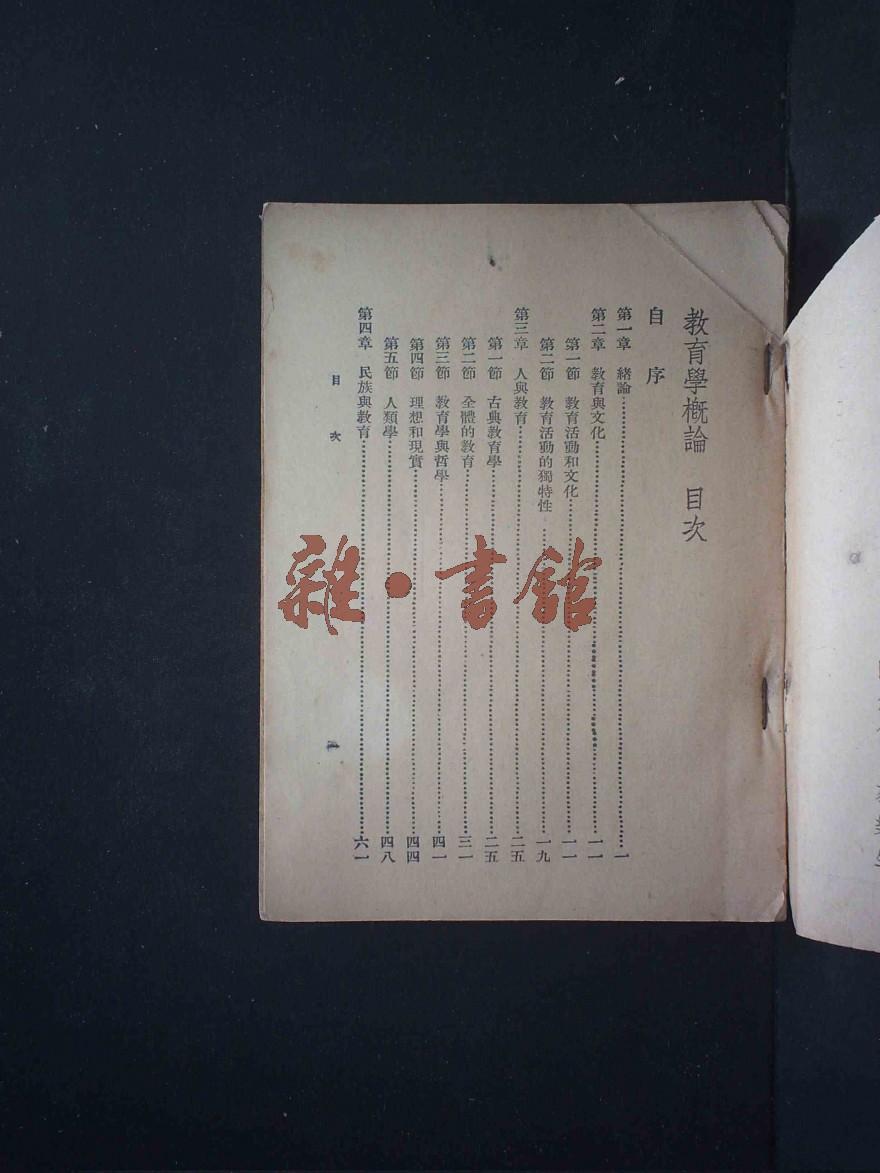 教育學概論　目次
自　序
第一章　緒論……一
第二章　教育與文化……一一
第一節　教育活動和文化……一一
第二節　教育活動的獨特性……一九
第三章　人與教育……二五
第一節　古典教育學……二五
第二節　全體的教育……三一
第三節　教育學與哲學……四一
第四節　理想和現實……四四
第五節　人類學……四八
第四章　民族與教育……六一
目　次
雜·書館